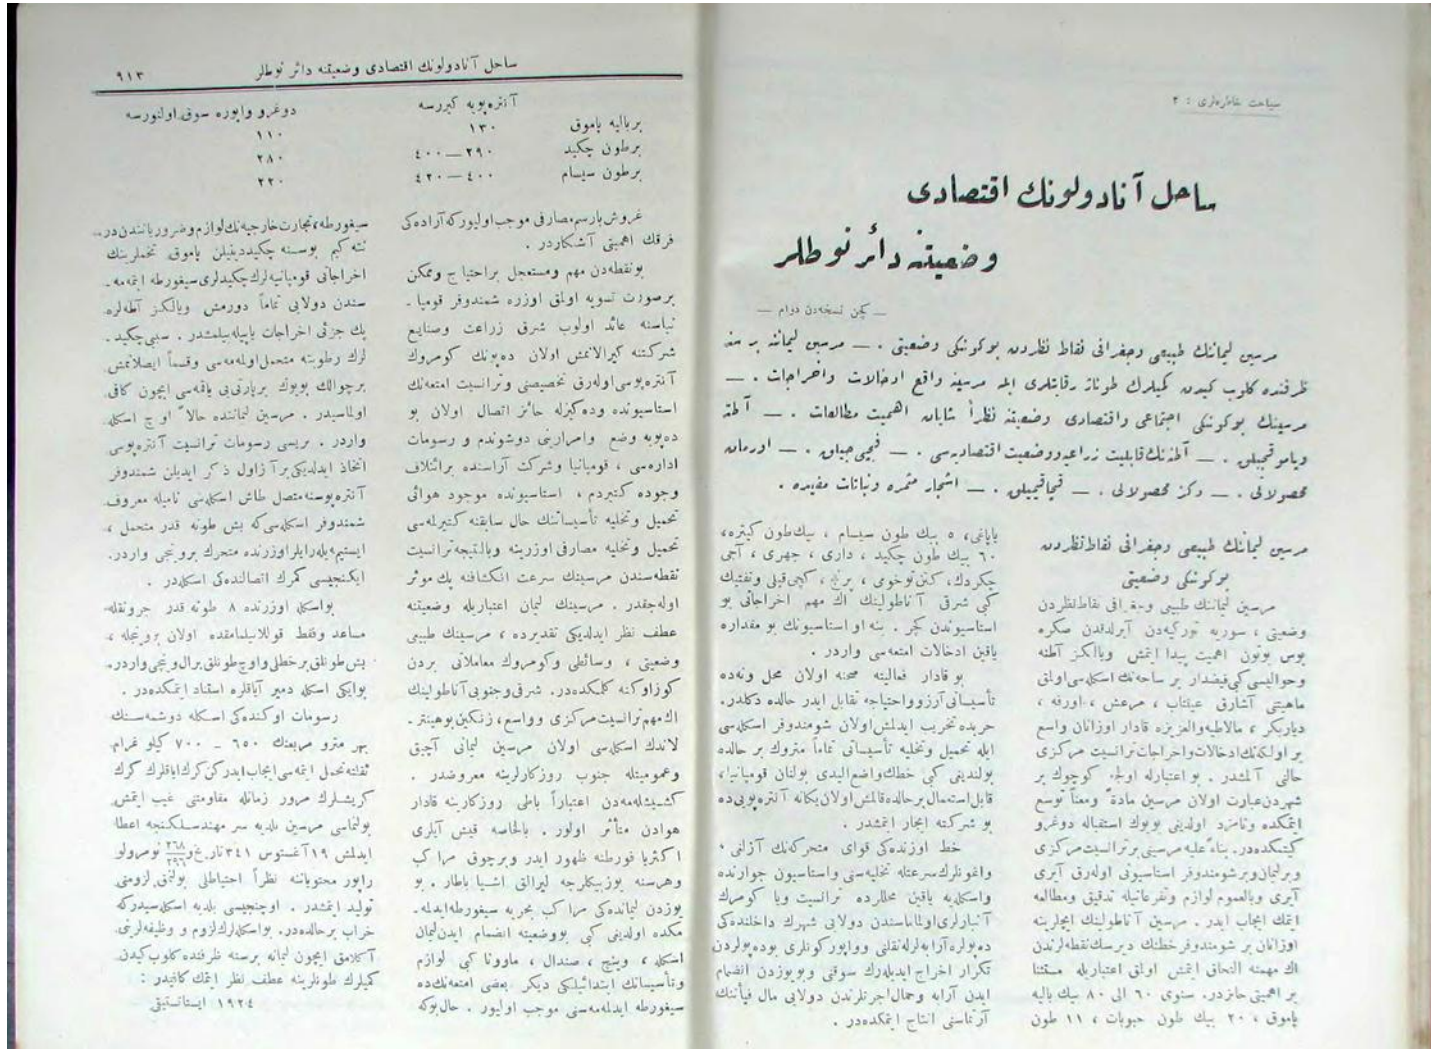 سياحت خاطره‌لرى : ٢
ساحل آنادولونك اقتصادى
وضعيتنه دائر نوطلر
— كچن نسخه‌دن دوام —
مرسين ليماننك طبيعى وجغرافى نقاط نظردن بوكونكى وضعيتى . — مرسين ليماننه بر سنه
ظرفنده كلوب كيدن كميلرك طوناژ رقابتلرى ايله مرسينه واقع ادخالات واخراجات . —
مرسينك بوكونكى اجتماعى واقتصادى وضعيتنه نظراً شايان اهميت مطالعات . — آطنه
وپاموقجيلق . — آطنه‌نك قابليت زراعيه ووضعيت اقتصاديه‌سى . — . — اورمان
محصولاتى . — دكز محصولاتى . — . — اشجار مثمره ونباتات مفيده .
مرسين ليماننك طبيعى وجغرافى نقاط نظردن
بوكونكى وضعيتى
مرسين ليماننك طبيعى وجغرافى نقاط نظردن
وضعيتى ، سوريه توركيه‌دن آيرلدقدن صكره
بوس بوتون اهميت پيدا ايتمش ويالكز آطنه
وحواليسى كبى فيضدار بر ساحه‌نك اسكله‌سى اولمق
ماهيتى آشارق عينتاب ، مرعش ، اورفه ،
دياربكر ، ملاطيه والعزيزه قادار اوزانان واسع
بر اولكه‌نك ادخالات واخراجات ترانسيت مركزى
حالنى آلمشدر . بو اعتبارله اولجه كوچوك بر
شهردن عبارت اولان مرسين مادةً ومعناً توسع
ايتمكده ونامزد اولدينى بويوك استقباله دوغرو
كيتمكده‌در. بناءً عليه مرسينى بر ترانسيت مركزى
وبرليمان وبرشومندوفر استاسيونى اوله‌رق آيرى
آيرى وبالعموم لوازم وتفرعاتيله تدقيق ومطالعه
ايتمك ايجاب ايدر . مرسين آناطولينك ايچلرينه
اوزانان بر شومندوفر خطنك ديرسك نقطه‌لرندن
اك مهمنه التحاق ايتمش اولمق اعتباريله مستثنا
بر اهميتى حائزدر. سنوى ٦٠ الى ٨٠ بيك باليه
پاموق ، ٢٠ بيك طون حبوبات ، ١١ طون
ياپاغى، ٥ بيك طون سيسام ، بيك طون كيتره،
٦٠ بيك طون چكيد ، دارى ، جهرى ، آجى
چكردك، كتن توخومى ، برنج ، كچى قيلى وتفتيك
كبى شرقى آناطولينك اك مهم اخراجاتى بو
استاسيوندن كچر . ينه او استاسيونك بو مقداره
ياقين ادخالات امتعه‌سى واردر .
بو قادار فعاليته صحنه اولان محل ونه‌ده
تأسيساتى آرزو واحتياجه تقابل ايدر حالده دكلدر.
حربده تخريب ايدلمش اولان شومندوفر اسكله‌سى
ايله تحميل وتخليه تأسيساتى تماماً متروك بر حالده
بولندينى كبى خطك واضع اليدى بولنان قومپانيا،
قابل استعمال بر حالده قالمش اولان يكانه آنتره‌پويى ده
بو شركته ايجار ايتمشدر .
خط اوزنده‌كى قواى متحركه‌نك آزلنى ،
واغونلرك سرعتله تخليه‌سنى واستاسيون جوارنده
واسكله‌يه ياقين محللرده ترانسيت ويا كومرك
آنبارلرى اولماماسندن دولايى شهرك داخلنده‌كى
ده‌پولره آرابه‌لرله نقلنى ووآپور كونلرى بوده‌پولردن
تكرار اخراج ايديله‌رك سوقنى وبويوزدن انضمام
ايدن آرابه وحمال اجرتلرندن دولايى مال فيأتنك
آرتماسنى انتاج ايتمكده‌در .
ساحل آنادولونك اقتصادى وضعيتنه دائر نوطلر
٩١٣
آنتره‌پويه كيررسه
دوغرو واپوره سوق اولنورسه
برباليه پاموق ١٣٠ ١١٠
برطون چكيد ٢٩٠—٤٠٠ ٢٨٠
برطون سيسام ٤٠٠—٤٢٠ ٢٢٠
غروش بارسم مصارفى موجب اوليوركه آراده‌كى
فرقك اهميتى آشكاردر .
بونقطه‌دن مهم ومستعجل براحتياج وممكن
برصورت تسويه اولمق اوزره شمندوفر قومپا ـ
نياسنه عائد اولوب شرق زراعت وصنايع
شركتنه كيرالانمش اولان ده‌پونك كومروك
آنتره‌پوسى اوله‌رق تخصيصنى وترانسيت امتعه‌نك
استاسيونده ودكزله حائز اتصال اولان بو
ده‌پويه وضع وامرارينى دوشوندم و رسومات
اداره‌سى ، قومپانيا وشركت آراسنده برائتلاف
وجوده كتيردم ، استاسيونده موجود هوائى
تحميل وتخليه تأسيساتنك حال سابقنه كتيرلمه‌سى
تحميل وتخليه مصارفى اوزرينه وبالنتيجه ترانسيت
نقطه‌سندن مرسينك سرعت انكشافنه پك موثر
اوله‌جقدر . مرسينك ليمان اعتباريله وضعيتنه
عطف نظر ايدلديكى تقديرده ، مرسينك طبيعى
وضعيتى ، وسائطى وكومروك معاملاتى بردن
كوز اوكنه كلمكده‌در. شرقى وجنوبى آناطولينك
اك مهم ترانسيت مركزى و واسع ، زنكين بوهينتر ـ
لاندك اسكله‌سى اولان مرسين ليمانى آچيق
وعموميتله جنوب روزكارلرينه معروضدر .
كشيشله‌مه‌دن اعتباراً باطى روزكارينه قادار
هوادن متأثر اولور . بالخاصه قيش آيلرى
اكثريا فورطنه ظهور ايدر وبرچوق مراكب
وهرسنه يوزبيكلرجه ليرالق اشيا باطار . بو
يوزدن ليمانده‌كى مراكب بحريه سيغورطه ايدلمه ـ
مكده اولدينى كبى بووضعيته انضمام ايدن ليمان
اسكله ، وينچ ، صندال ، ماوونا كبى لوازم
وتأسيساتك ابتدائيلكى ديكر بعضى امتعه‌نك‌ده
سيغورطه ايدلمه‌مه‌سنى موجب اوليور . حال‌بوكه
سيغورطه، تجارت خارجيه‌نك لوازم وضرورياتندن‌در..
نته كيم بوسنه چكيددينيلن پاموق تخملرينك
اخراجاتى قومپانيه‌لرك چكيدلرى سيغورطه ايتمه‌مه ـ
سندن دولايى تماماً دورمش ويالكز آطه‌لره
پك جزئى اخراجات ياپيله‌بيلمشدر . سببى چكيد ـ
لرك رطوبته متحمل اولمه‌مه‌سى وقسماً ايصلانمش
برچوالك بويوك برپارتى‌يى ياقمه‌سى ايچون كافى
اولماسيدر . مرسين ليماننده حالاً اوچ اسكله
واردر . بريسى رسومات ترانسيت آنتره‌پوسى
اتخاذ ايدلديكى برآز اول ذكر ايديلن شمندوفر
آنتره‌پوسنه متصل طاش اسكله‌سى ناميله معروف
شمندوفر اسكله‌سى‌كه بش طونه قدر متحمل ،
ايستيم ايله رايلر اوزرنده متحرك بروينجى واردر.
ايكنجيسى كمرك اتصالنده‌كى اسكله‌در .
بواسكله اوزرنده ٨ طونه قدر جرثقله
مساعد وفقط قوللانيلمامقده اولان بروينجله ،
بش طونلق برخطلى واوچ طونلق برال وينجى واردر.
بوايكى اسكله دمير آياقلره استناد ايتمكده‌در.
رسومات اوكنده‌كى اسكله دوشمه‌سنك
بهر مترو مربعنك ٦٥٠ ـ ٧٠٠ كيلو غرام
ثقلته تحمل ايتمه‌سى ايجاب ايدركن كرك اياقلرك كرك
كريشلرك مرور زمانله مقاومتنى غيب ايتمش
بولنماسى مرسين بلديه سر مهندسلكنجه اعطا
ايدلمش ١٩ آغستوس ٣٤١ تاريخ و ٢٦٨/٢٩٦ نومرولو
راپور محتوياتنه نظراً احتياطلى بولنمق لزومنى
توليد ايتمشدر . اوچنجيسى بلديه اسكله‌سيدركه
خراب برحالده‌در. بواسكله‌لرك لزوم و وظيفه‌لرينى
آكلامق ايچون ليمانه برسنه ظرفنده كلوب كيدن
كميلرك طونلرينه عطف نظر ايتمك كافيدر :
١٩٢٤ ايستاتستيقى